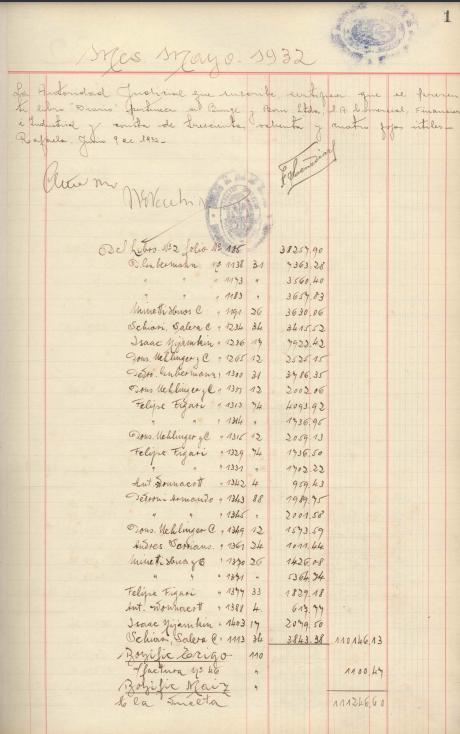 1
Mes Mayo. 1932
La Autoridad Judicial que suscribe certifica que el presen
te libro "Diario" pertenece a Bunge y Born Ltda, S.A. Comercial, Financiera
e Industrial y consta de trescientas ochenta y cuatro fojas útiles.
Rafaela, Junio 9 de 1932.
Ante mi
Del Libro Nº2 folio Nº 185 38257,90
P. Lubermann Nº 1138 31 7363.28
" " " 1173 " 3560.40
" " " 1183 " 3657.83
Minetti Hnos C " 1191 26 3630.06
Schiavi, Galera C " 1234 34 3415.52
Isaac " 1236 17 7922.42
Dous. Uehlinger y C " 1265 12 2525.15
" 1300 31 3786.35
Dous Uehlinger y C " 1307 12 2002.06
Felipe Figari " 1313 74 4093.92
" " " 1314 " 1736.95
Dous. Uehlinger y C " 1315 12 2059.13
Felipe Figari " 1329 74 1736.50
" " " 1331 " 1702.22
Ant. Bonnacott " 1342 4 959.43
Petroni Armando " 1343 88 1989.75
" " " 1345 " 2001.58
Dous. Uehlinger C " 1349 12 1573.59
Andres " 1361 24 1011.44
Minetti Hnos y C " 1370 26 1426.08
" " " 1371 " 5364.74
Felipe Figari " 1377 33 1829.18
Ant. Bonnacott " 1388 4 613.77
Isaac " 1403 17 2079.50
Schiavi, Galera C " 1113 34 3843.38 110146.13
Bonific Trigo 110
factura Nº 46 " 1100.47
Bonific Maiz "
A la vuelta 111246.60